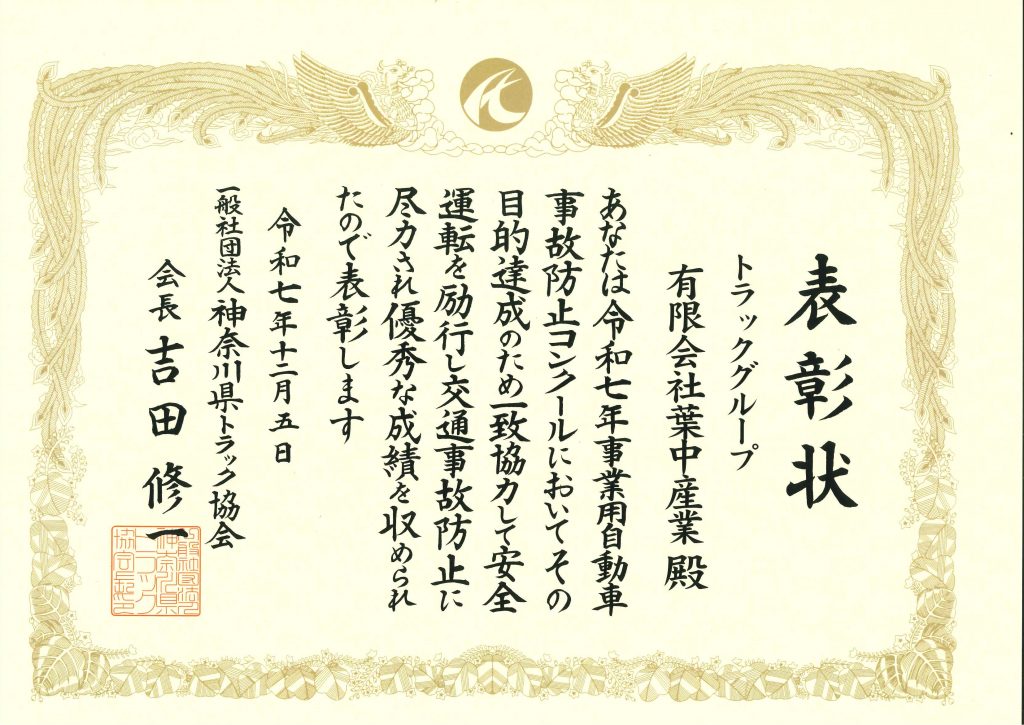 表彰状
トラックグループ
有限会社葉中産業 殿
あなたは令和七年事業用自動車
事故防止コンクールにおいてその
目的達成のため一致協力して安全
運転を励行し交通事故防止に
尽力され優秀な成績を収められ
たので表彰します
令和七年十二月五日
一般社団法人神奈川県トラック協会
会長 吉田修一